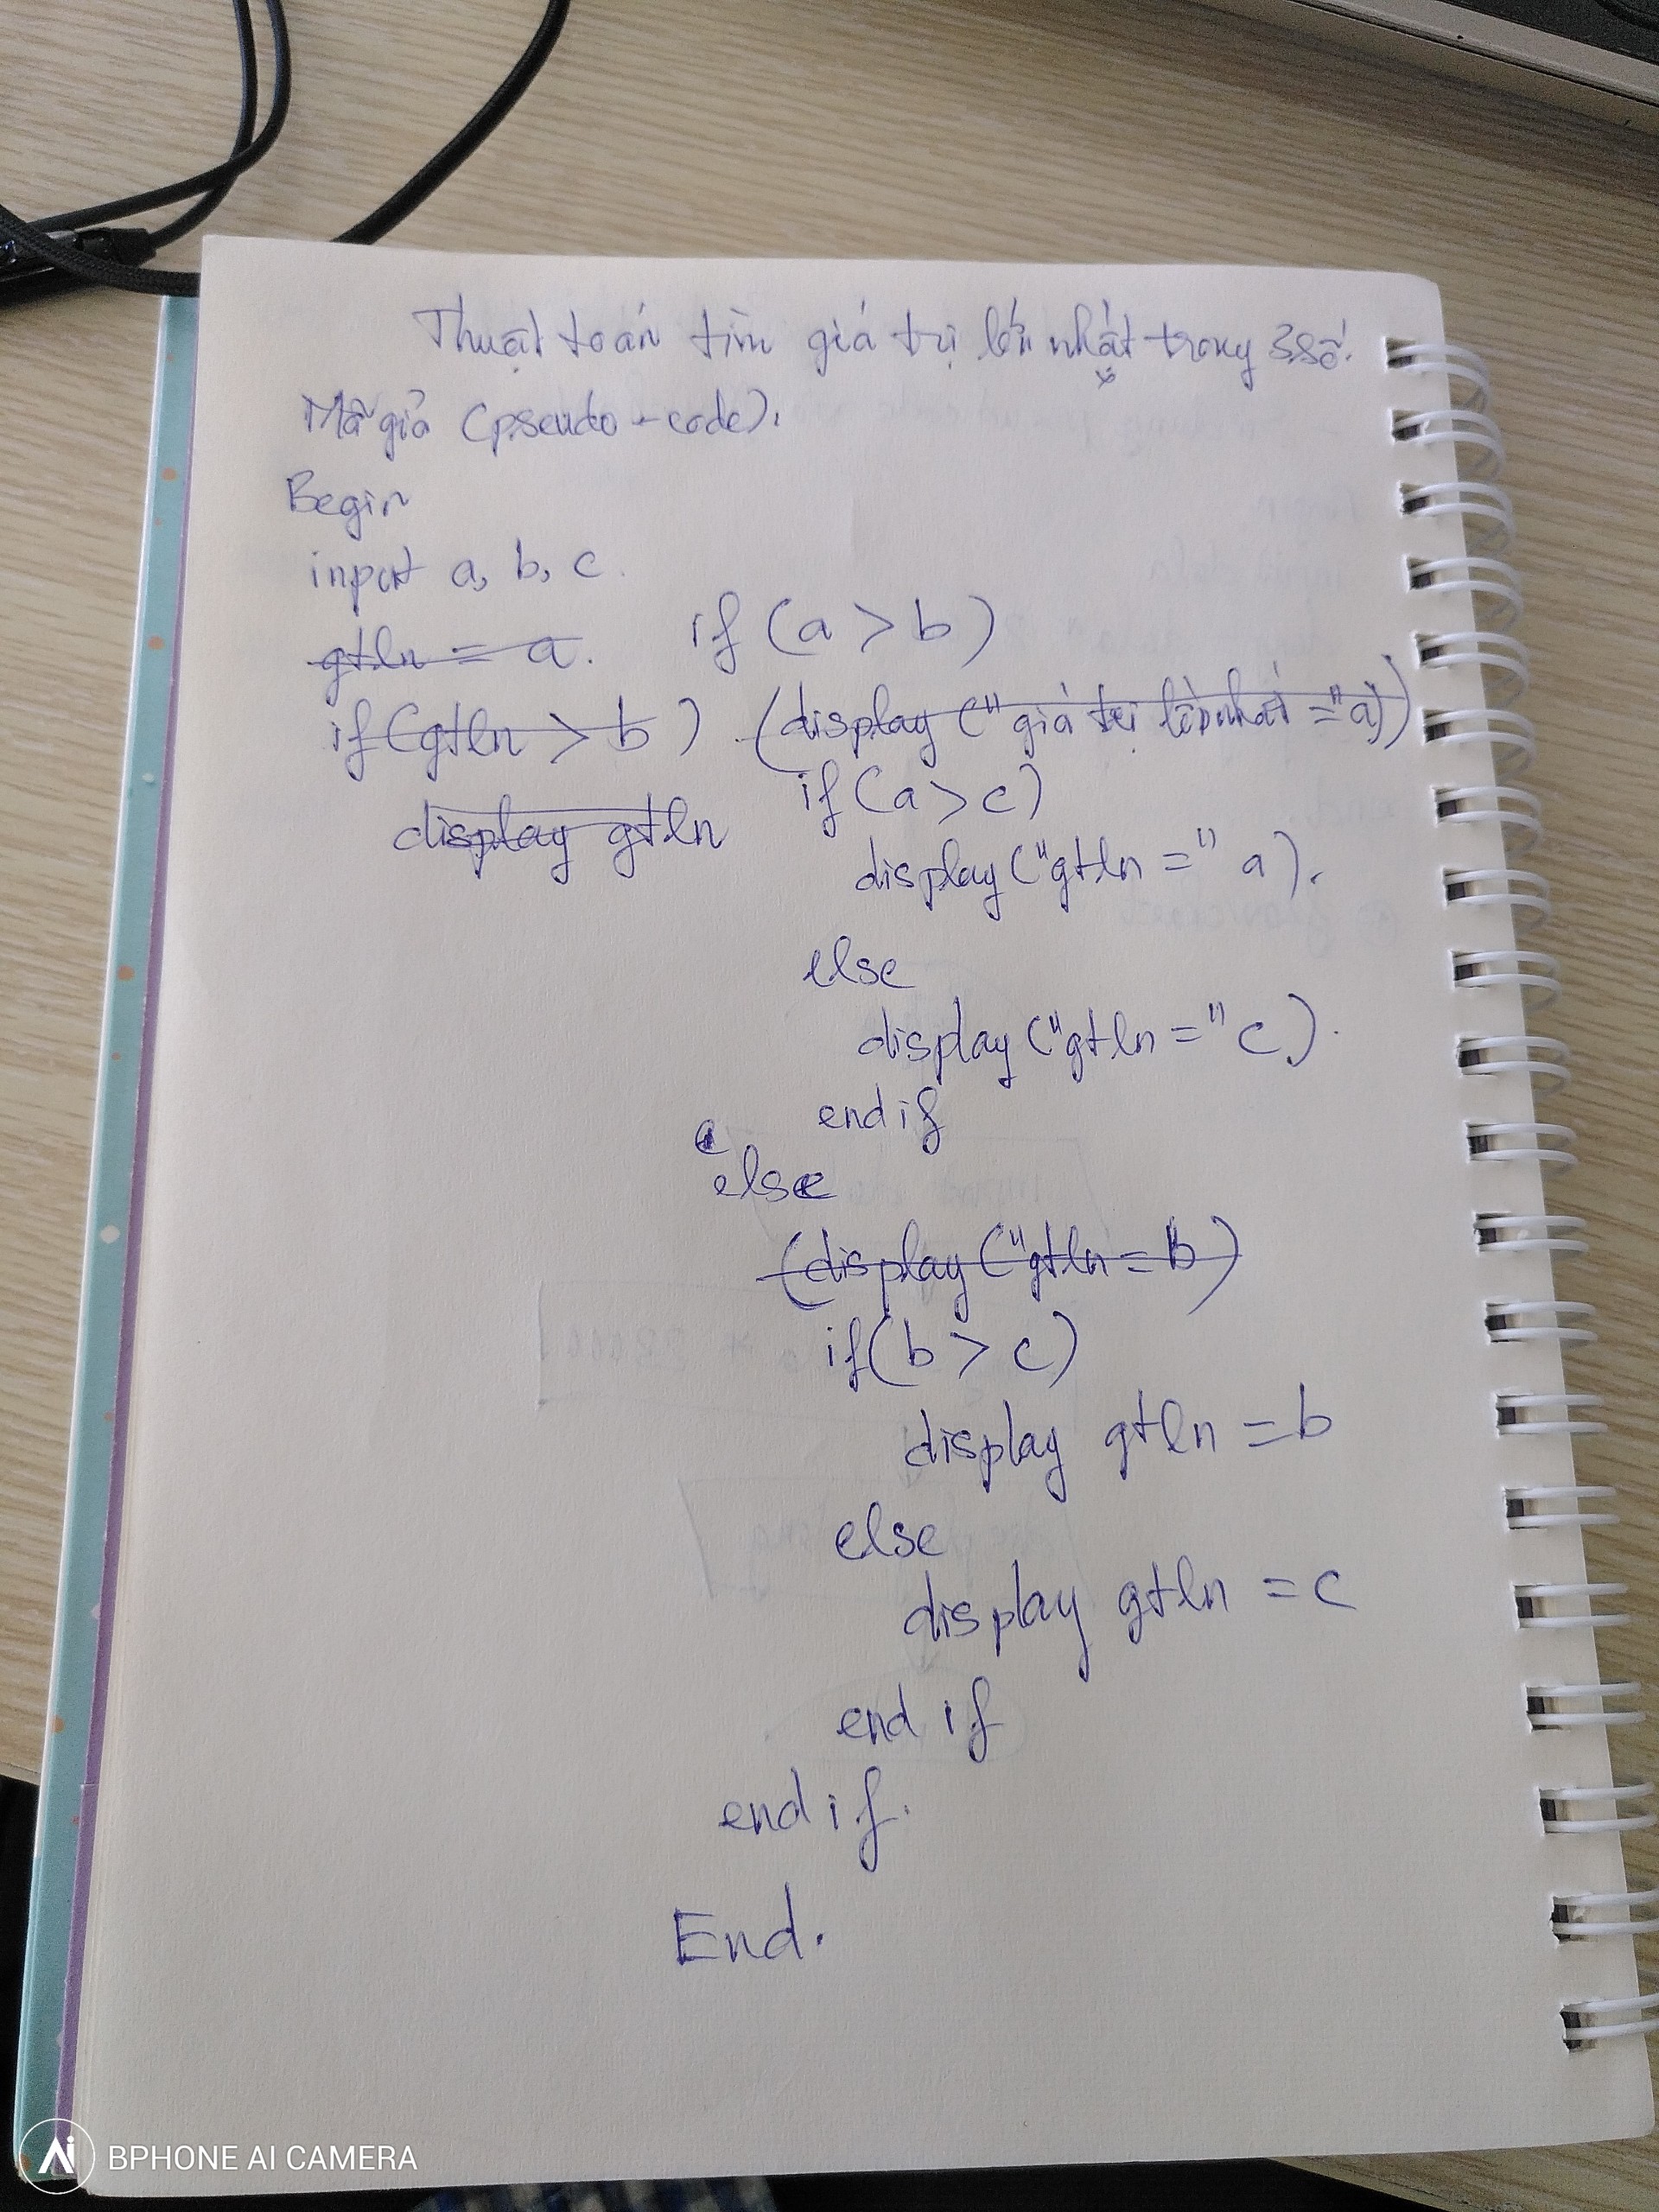 Thuật toán tìm giá trị lớn nhất trong 3 số.
Mã giả (pseudo-code).
Begin
input a, b, c.
gtln = a. if (a > b)
if (gtln > b) (display ("giá trị lớn nhất =" a))
display gtln if (a > c)
display ("gtln =" a).
else
display ("gtln =" c).
end if
else
(display ("gtln = b")
if (b > c)
display gtln = b
else
display gtln = c
end if
end if.
End.
BPHONE AI CAMERA